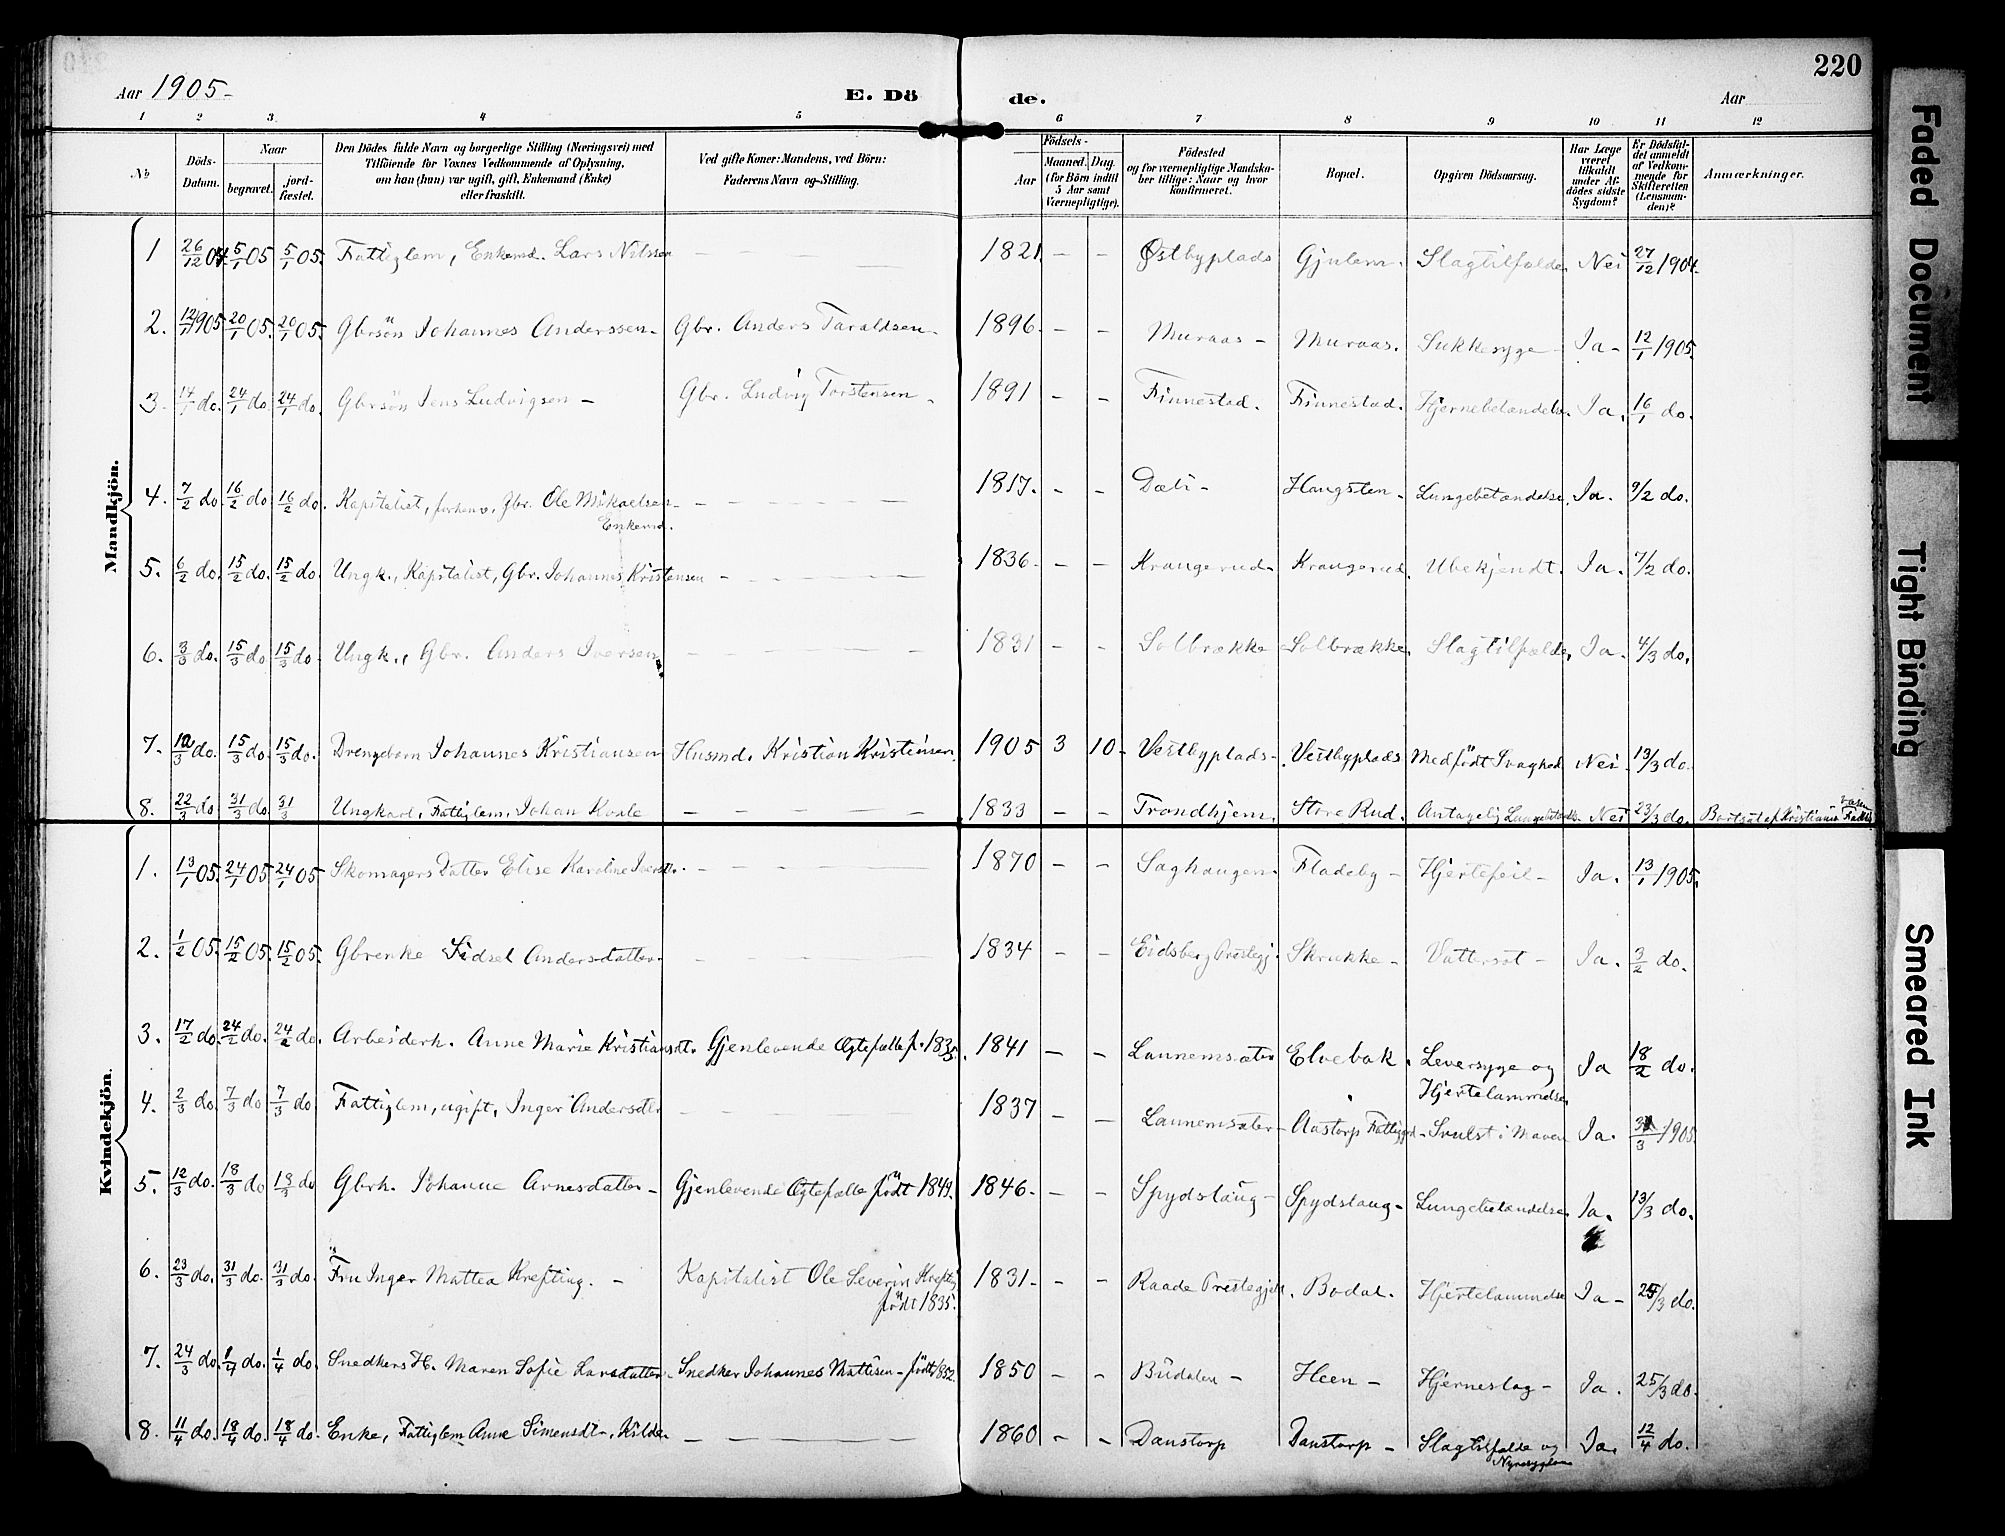 220
Aar 1905 - E. Dö de. Aar
1 2 3 4 5 6 7 8 9 10 11 12
No
Döds-Datum.
Naar
begravet.
jord-fæstet.
Den Dödes fulde Navn og borgerlige Stilling (Næringsvei) med
Tilföiende for Voxnes Vedkommende af Oplysning,
om han (hun) var ugift, gift, Enkemand (Enke)
eller fraskilt.
Ved gifte Koner: Mandens, ved Börn:
Faderens Navn og Stilling.
Födsels-
Aar
Maaned. Dag.
(for Börn indtil
5 Aar samt
Værnepligtige).
Födested
og for værnepligtige Mandska-
ber tillige: Naar og hvor
konfirmeret.
Bopæl.
Opgiven Dödsaarsag.
Har Læge
været
tilkaldt
under Af-
dödes sidste
Sygdom?
Er Dödsfal-
det anmeldt
af Vedkom-
mende for
Skifteretten
(Lensman-
den)?
Anmærkninger.
Mandkjön.
1 26/12 04. 5/1 05 5/1 05. Fattiglem, Enkemd. Lars Nilssen — — — 1821. — — Østbyplads Gjulem. Slagtilfælde. Nei 27/12 1904.
2. 12/1 1905 20/1 05. 20/1 05. Gbrsön Johannes Anderssen - Gbr. Anders Taraldsen - 1896. — — Muraas - Muraas. Sukkesyge Ja - 12/1 1905.
3. 14/1 do. 24/1 do. 24/1 do. Gbrsön Jens Ludvigsen - Gbr. Ludvig Torstensen - 1891 — — Finnestad. Finnestad. Hjernebetændelse. Ja. 16/1 do.
4. 7/2 do. 16/2 do 16/2 do. Kapitalist, forhenv. Gbr. Ole Mikaelsen - — — — 1817. — — Dæli - Haugsten - Lungebetændelse. Ja. 9/2 do.
Enkemd.
5. 6/2 do. 15/2 do. 15/2 do. Ungk., Kapitalist, Gbr. Johannes Kristensen — — — 1836. — — Krangerud - Krangerud. Ubekjendt. Ja. 7/2 do.
6. 3/3 do. 15/3 do 15/3 do. Ungk., Gbr. Anders Iversen — — — 1831 — — Solbrække Solbrække. Slagtilfælde. Ja. 4/3 do.
7. 12/3 do. 15/3 do. 15/3 do. Drengebarn Johannes Kristiansen Husmd. Kristian Kristiansen. 1905 3 10. Vestbyplads - Vestbyplads Medfödt Svaghed Nei. 13/3 do.
8. 22/3 do 31/3 do. 31/3 Ungkarl, Fattiglem, Johan Kvale — — — 1833 — — Trondhjem. Store Rud. Antagelig Nei 23/3 do. Bortsat af Kristiania
Kvindekjön.
1. 13/1 05. 24/1 05 24/1 05 Skomagers Datter Elise Karoline — — — 1870 — — Saghaugen. Fladeby - Hjertefeil - Ja. 13/1 1905.
2. 1/2 05. 15/2 05. 15/2 05. Gbrenke Sidsel Andersdatter. — — — 1834 — — Eidsberg Prestegj. Skrukke - Vattersot - Ja. 3/2 do.
3. 17/2 do. 24/2 do. 24/2 do. Arbeiderk. Anne Marie Kristiansdt. Gjenlevende Ægtefælle f. 1835. 1841 — — Launemsæter Elvebak. Leversyge og Ja 18/2 do.
Hjertelammelse
4. 2/3 do. 7/3 do 7/3 do Fattiglem, ugift, Inger Andersdtr — — — 1837 — — Launemsæter - Aastorp Fattiggd - Svulst i Maven Ja. 3/3 1905.
5. 12/3 do. 18/3 do 18/3 do Gbrk. Johanne Arnesdatter - Gjenlevende Ægtefælle födt 1849. 1846. — — Spydslaug - Spydslaug - Lungebetændelse. Ja. 13/3 do.
6. 23/3 do. 31/3 do. 31/3 do. Fru Inger Mattea Krefting. - Kapitalist Ole Severin Krefting 1831. — — Raade Prestegjeld. Bodal. Hjertelammelse Ja - 25/3 do.
födt 1835.
7. 24/3 do. 1/4 do. 1/4 do. Snedkers H. Maren Sofie Larsdatter - Snedker Johannes Mattisen - födt 1852. 1850 — — Büdalen - Heen - Hjerneslag - Ja. 25/3 do.
8. 11/4 do. 18/4 do. 18/4 do. Enke, Fattiglem Anne Simensdt., Kilde — — — 1860 — — Danstorp Danstorp - Slagtilfælde og Ja. 12/4 do.
Nyresygdom
Faded Document
Tight Binding
Smeared Ink